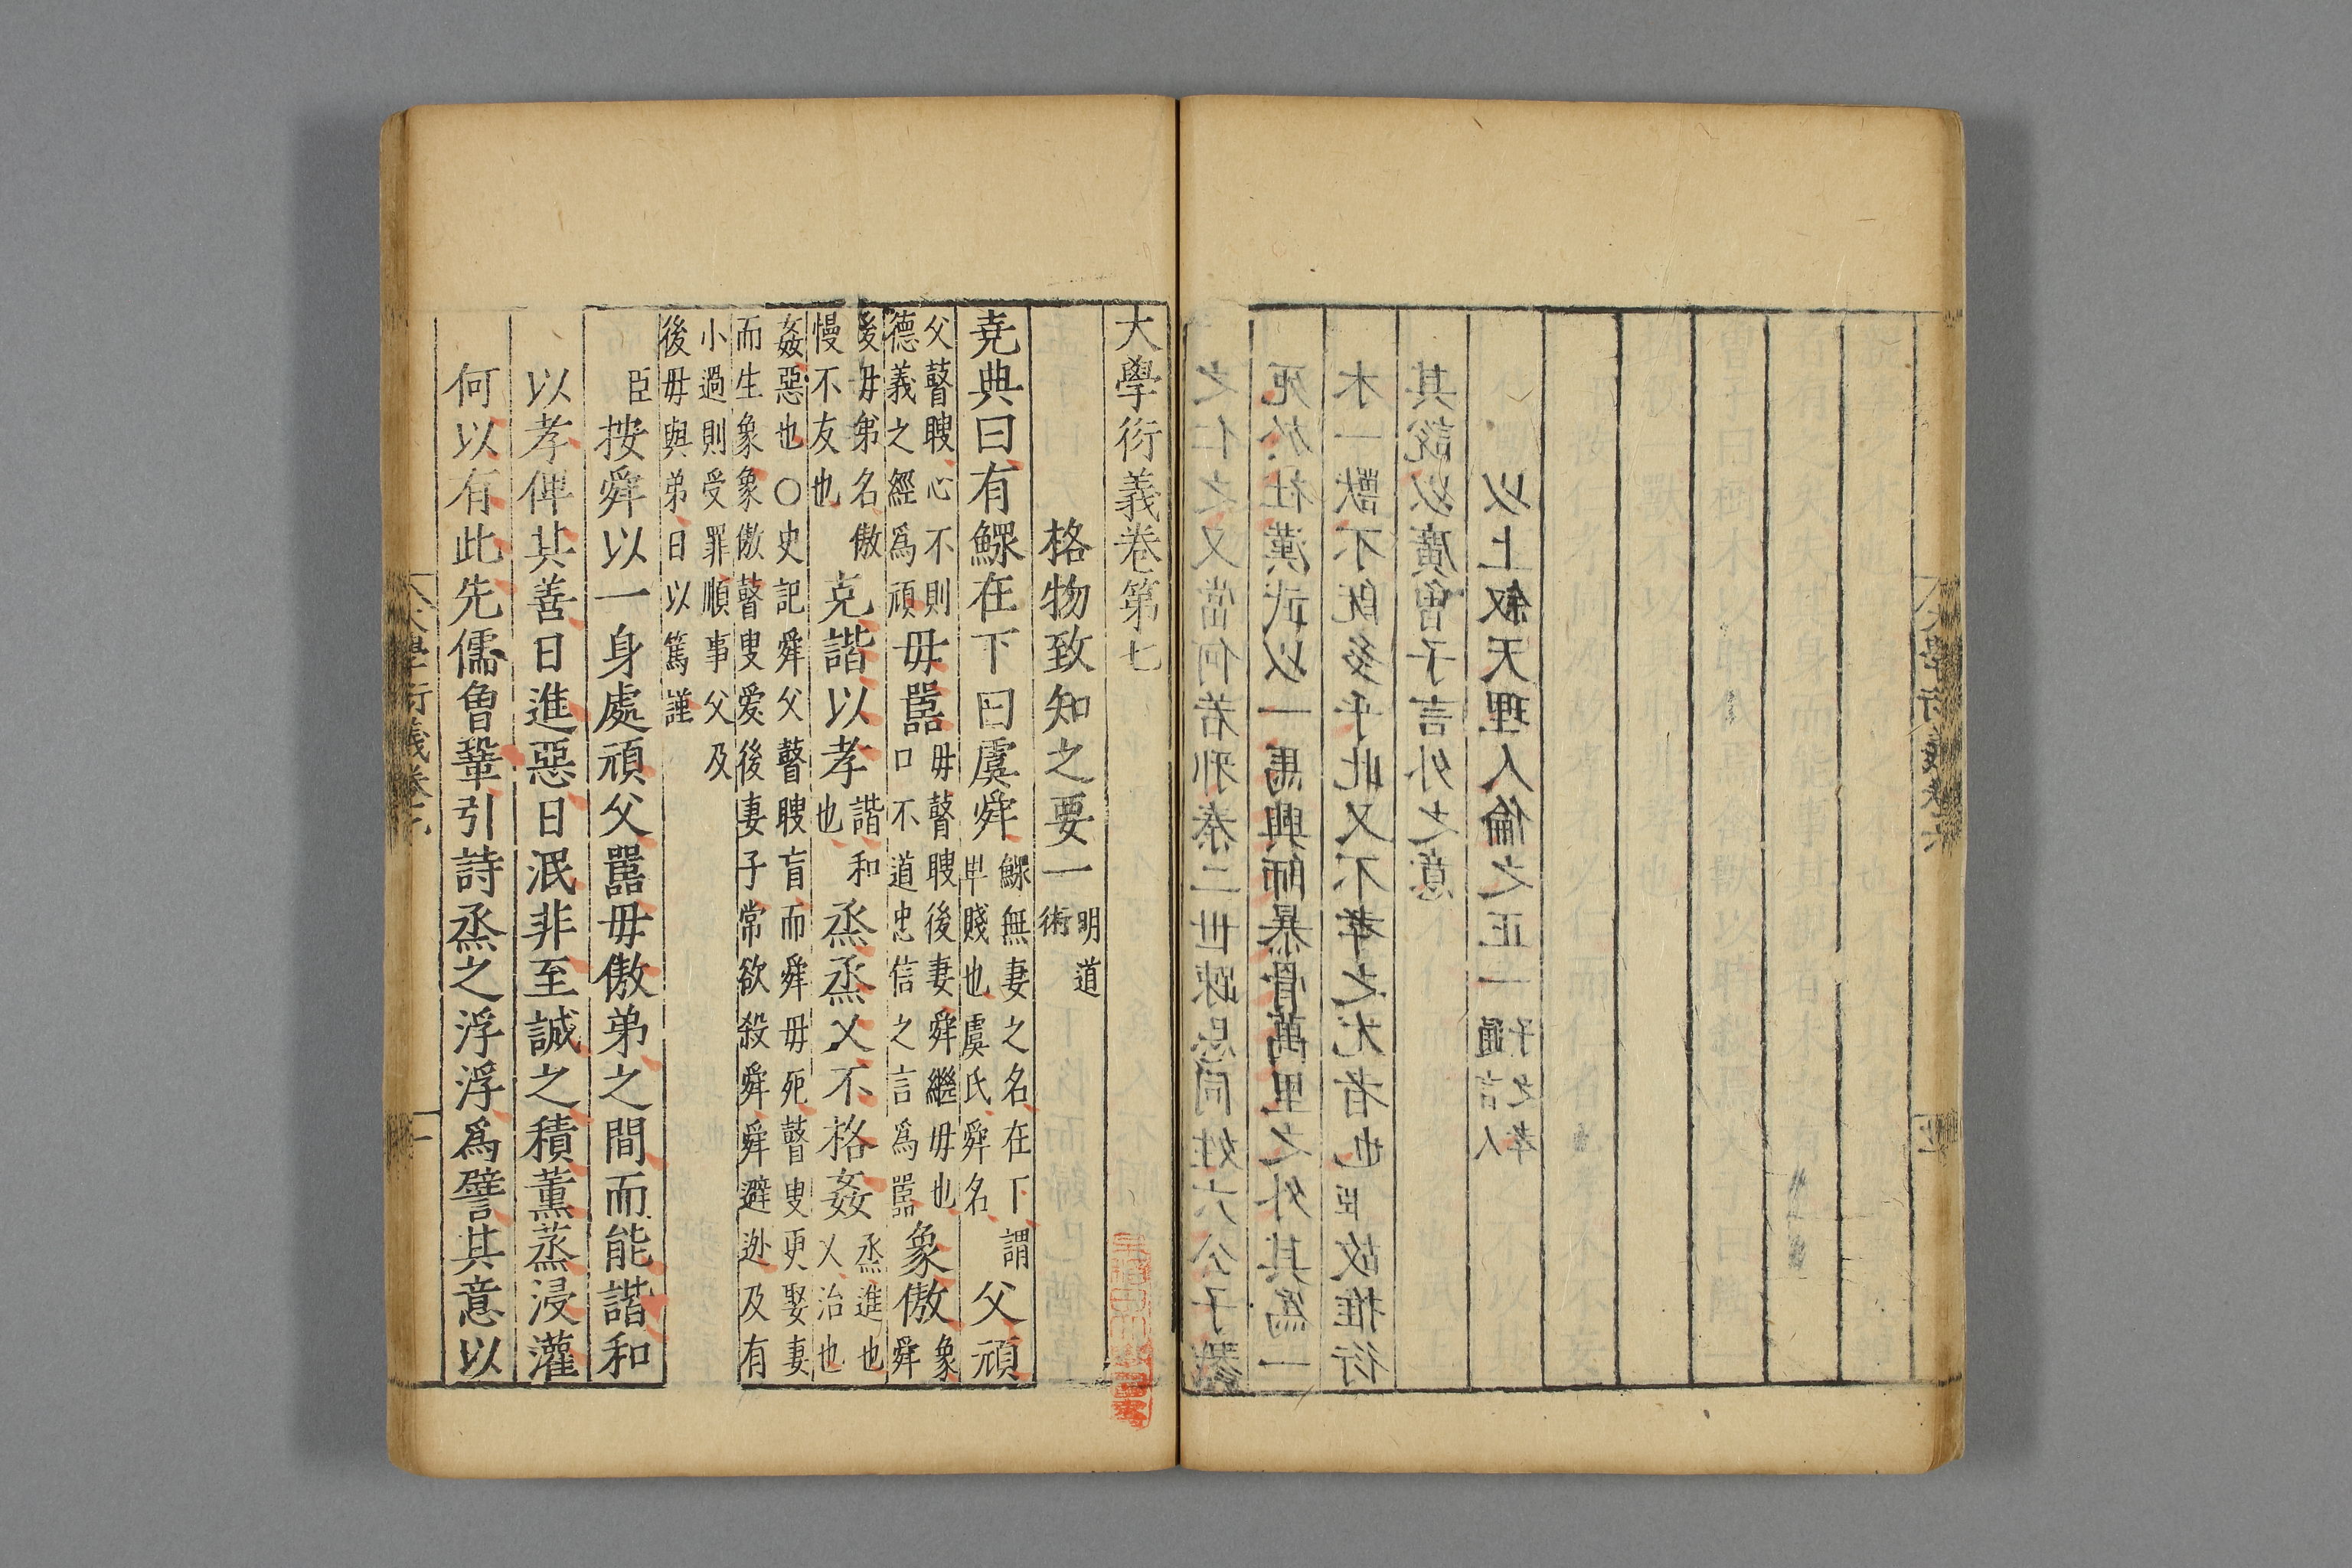 之仁之又當何若邪秦二世疎忌同姓六公子戮
死於社漢武以一馬興師暴骨萬里之外其爲一
木一獸不既多乎此又不孝之尤者也臣故推衍
其說以廣曾子言外之意
以上叙天理人倫之正一通言人子之孝
大學衍義卷六
大學衍義卷第七
格物致知之要一明道術
堯典曰有鰥在下曰虞舜鰥無妻之名在下謂卑賤也虞氏舜名父頑
父瞽瞍心不則德義之經爲頑母嚚母瞽瞍後妻舜繼母也口不道忠信之言爲嚚象傲象舜
後母弟名傲慢不友也克諧以孝諧和也烝烝乂不格姦烝進也乂治也
姦惡也○史記舜父瞽瞍盲而舜母死瞽叟更娶妻
而生象象傲瞽叟愛後妻子常欲殺舜舜避逃及有
小過則受罪順事父及
後母與弟日以篤謹
臣按舜以一身處頑父嚚母傲弟之間而能諧和
以孝俾其善日進惡日泯非至誠之積薰蒸浸灌
何以有此先儒曾鞏引詩烝之浮浮爲譬其意以
大學衍義卷七
一